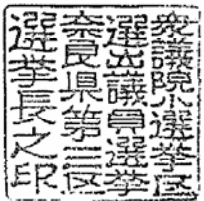 衆議院小選挙区
選出議員選挙
奈良県第三区
選挙長之印